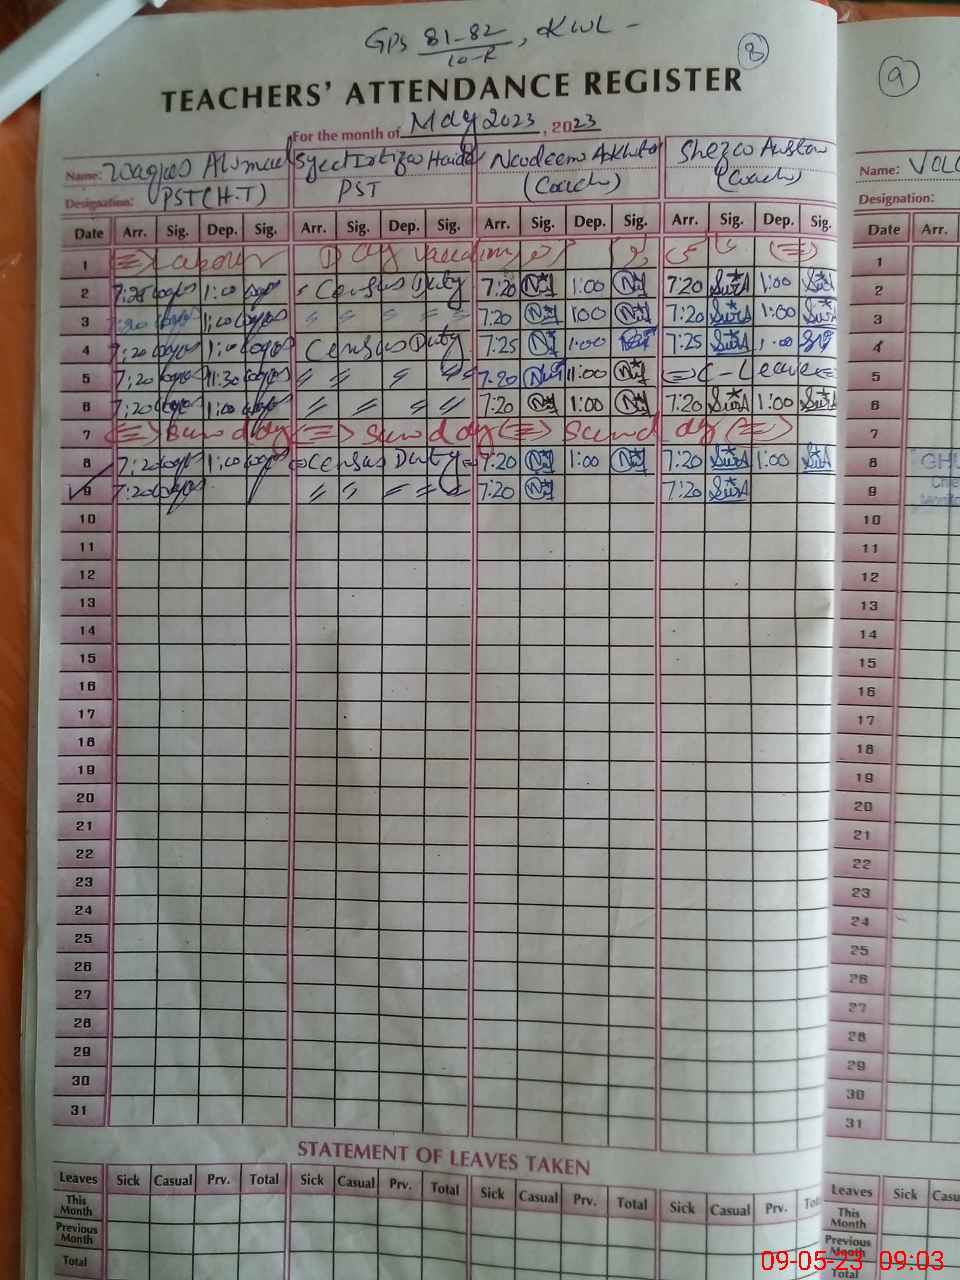 GPS 81-82/10-R, KWL -
8
9
TEACHERS' ATTENDANCE REGISTER
For the month of May 2023, 2023
Name: Waqas Ahmad Syed Irtiza Haider Nadeem Akhtar
Name:
Designation: PST (H.T) PST (Coach) (Coach)
Designation:
Date Arr. Sig. Dep. Sig. Arr. Sig. Dep. Sig. Arr. Sig. Dep. Sig. Arr. Sig. Dep. Sig. Date Arr.
1 Labour Day Vacation 1
2 7:25 1:00 Census Duty 7:20 1:00 7:20 1:00 2
3 7:20 1:00 〃 〃 〃 〃 〃 7:20 1:00 7:20 1:00 3
4 7:20 1:00 Census Duty 7:25 1:00 7:25 1:00 4
5 7:20 11:30 〃 〃 〃 〃 7:20 11:00 C-Leave 5
6 7:20 1:00 〃 〃 〃 〃 7:20 1:00 7:20 1:00 6
7 Sunday Sunday Sunday 7
8 7:20 1:00 Census Duty 7:20 1:00 7:20 1:00 8
9 7:20 〃 〃 〃 〃 7:20 7:20 9
10 10
11 11
12 12
13 13
14 14
15 15
16 16
17 17
18 18
19 19
20 20
21 21
22 22
23 23
24 24
25 25
26 26
27 27
28 28
29 29
30 30
31 31
STATEMENT OF LEAVES TAKEN
Leaves Sick Casual Prv. Total Sick Casual Prv. Total Sick Casual Prv. Total Sick Casual Prv. Leaves Sick
This Month
This Month
Previous Month
Previous Month
Total
Total
09-05-23 09:03